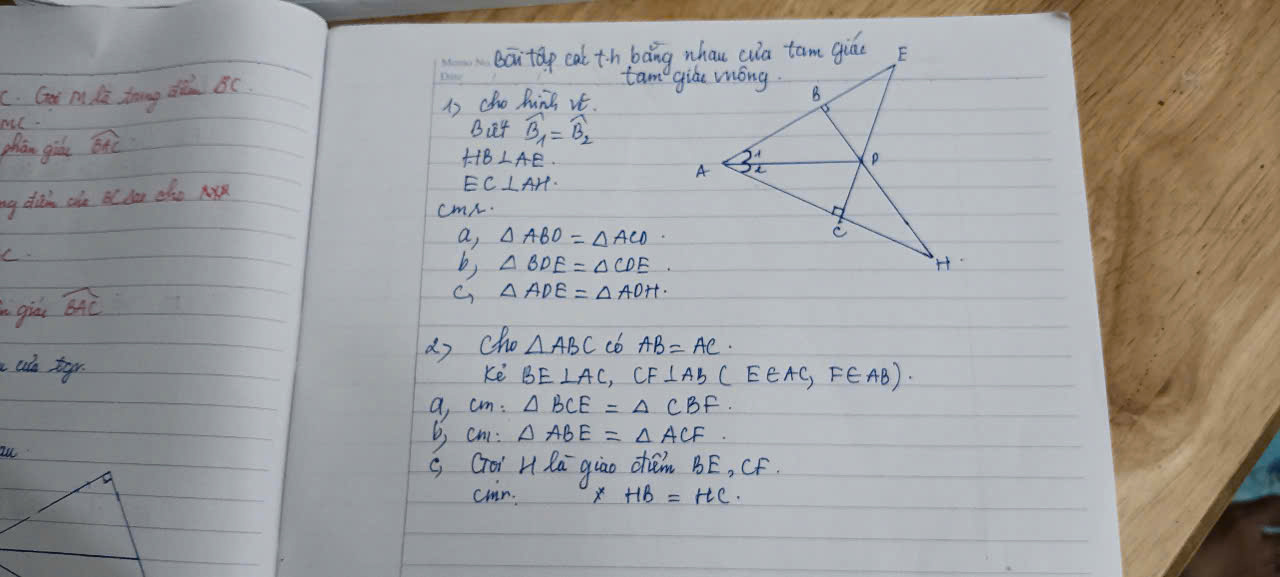 C. Gọi M là trung điểm BC.
MC.
phân giác BAC
ng điểm của BC sao cho
C.
n giác BAC
Memo No.
Date / /
Bài tập các t.h bằng nhau của tam giác
tam giác vuông.
1) Cho hình vẽ.
Biết B̂1 = B̂2
HB⊥AE.
EC⊥AH.
cmr.
a, △ABD = △ACD.
b, △BDE = △CDE.
c, △ADE = △ADH.
E
B
A
1
2
D
C
H
2) Cho △ABC có AB = AC.
Kẻ BE⊥AC, CF⊥AB ( E∈AC, F∈AB).
a, cm: △BCE = △CBF.
b, cm: △ABE = △ACF.
c, Gọi H là giao điểm BE, CF.
cmr. * HB = HC.